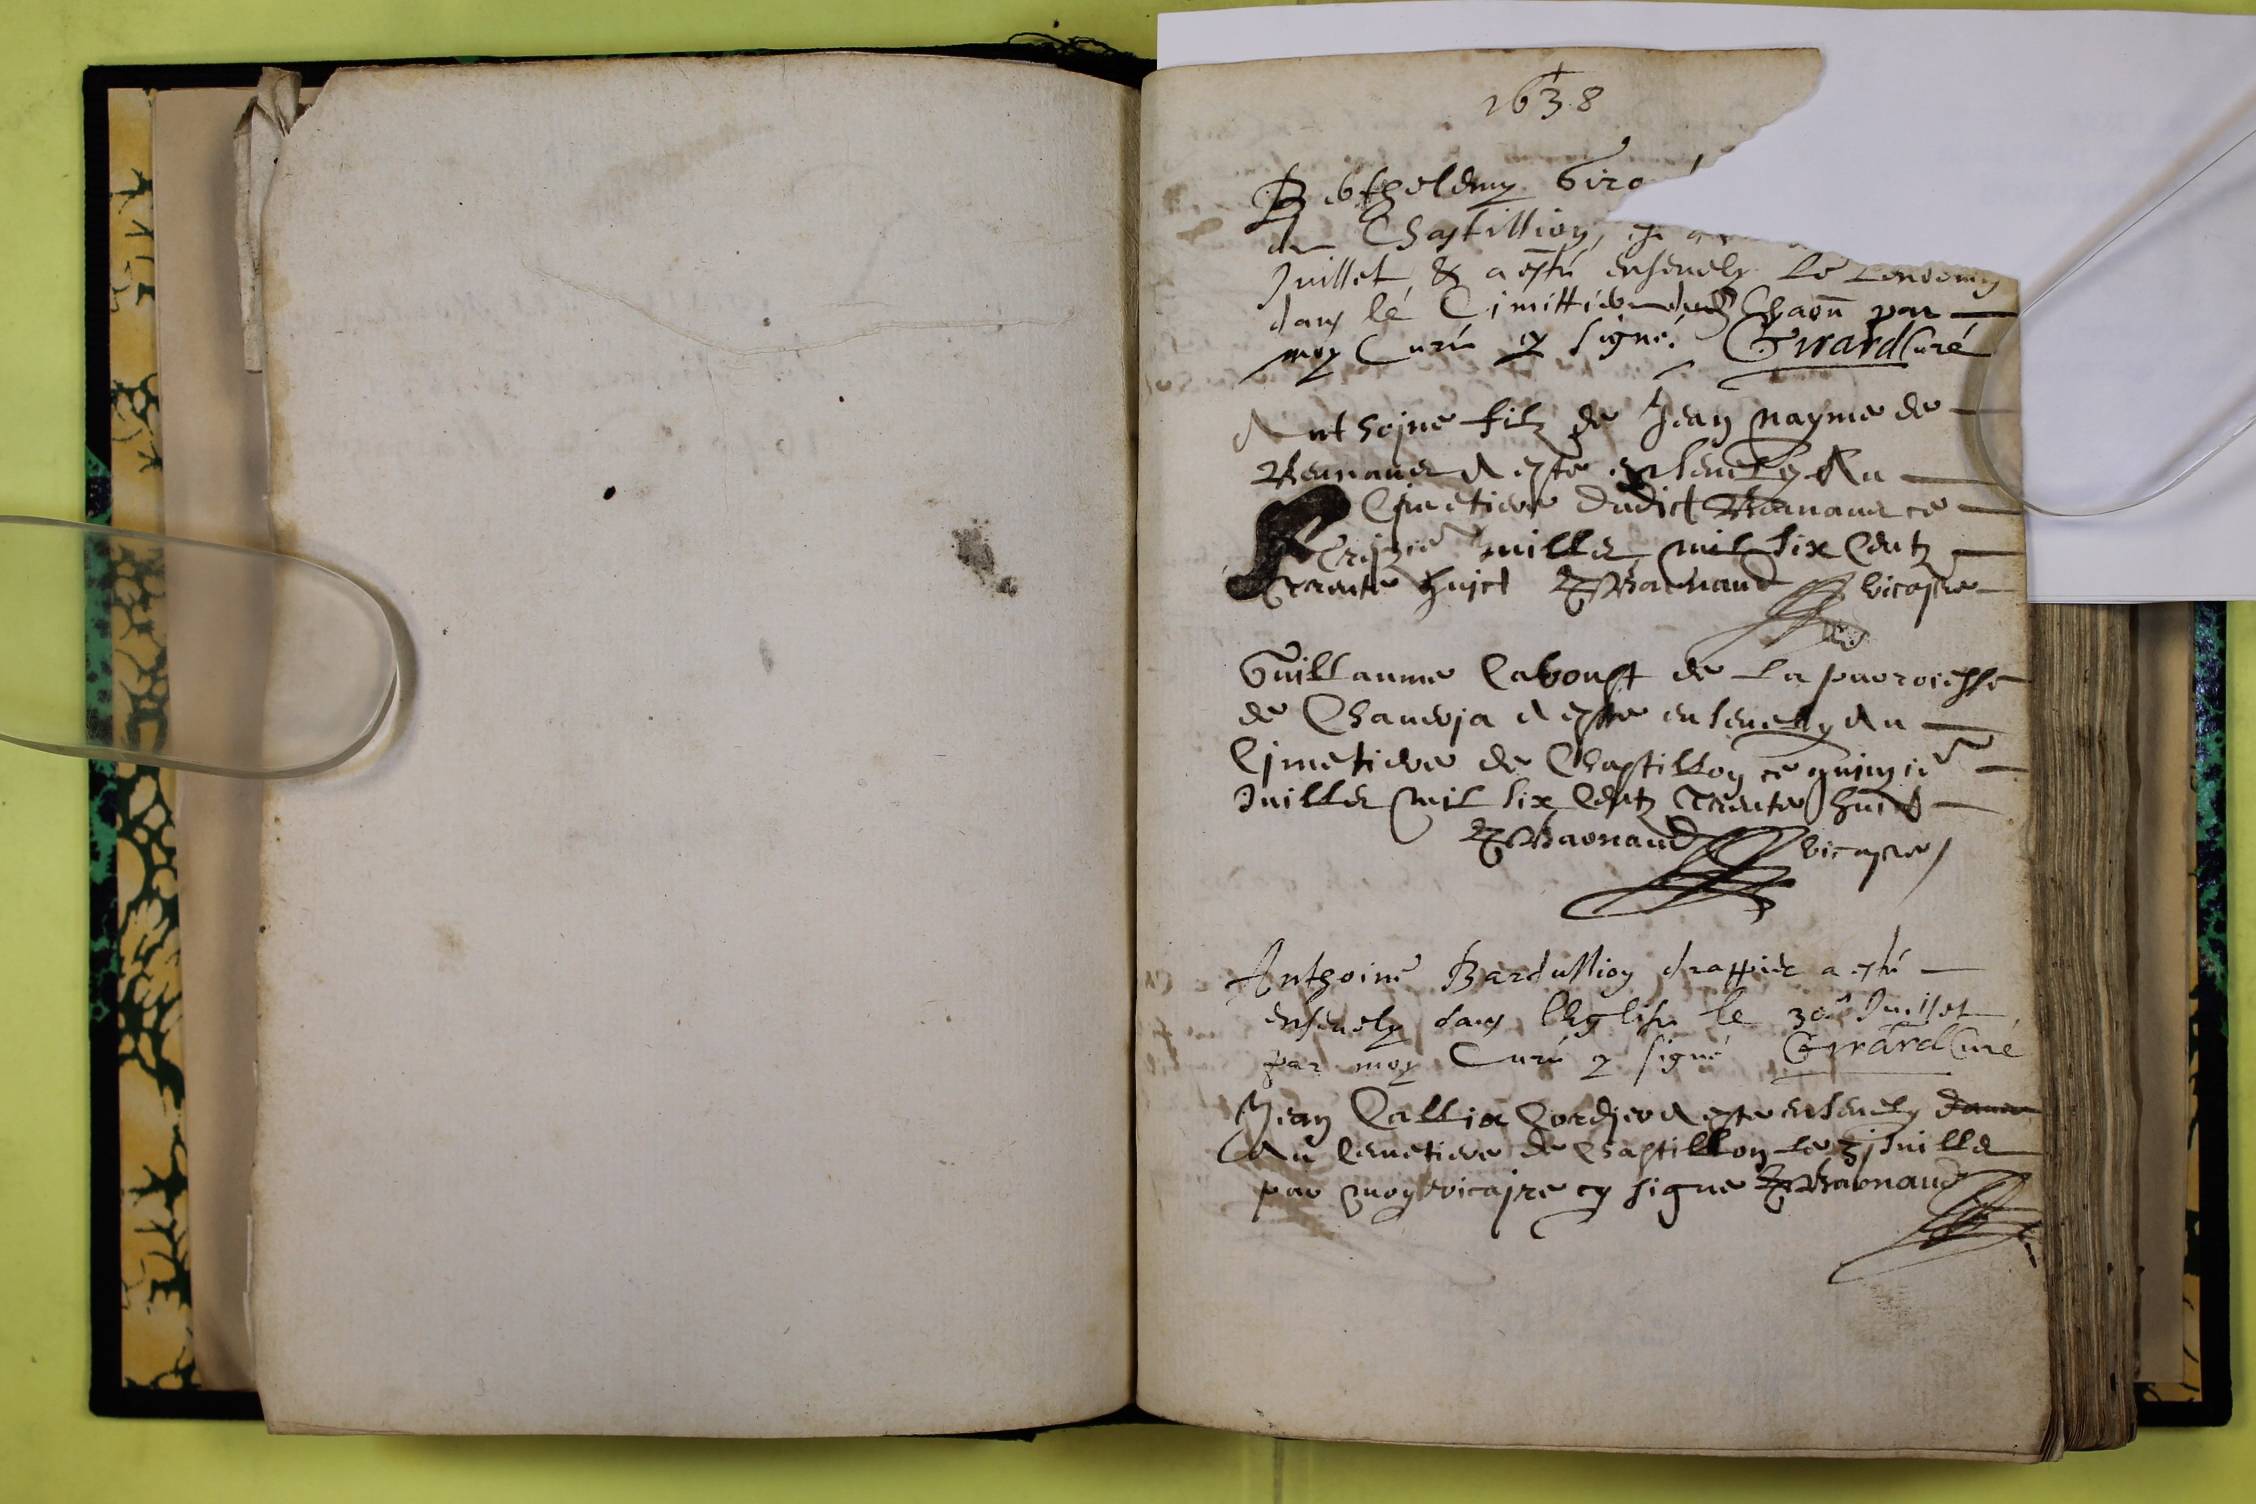 1638
Berthelemy Giro
de Chastillion,
Juillet, & a esté ensevely le lendemin
dans le Cimittiere dud Chaon par
moy Curé cy signé. Girard Curé
Anthojne filz de Jean Nayme de
A este ensevely Au
Cymetiere dudict ce
Trejzie Juillet mil six Centz
trente hujct Vicajre
Guillaume Laboust de La parroiesse
de A este ensevely Au
Cjmetiere de Chastillon ce quinzie
Juillet mil six Centz Trente huict
vicajre
Anthoine Bardullion drappier a esté
ensevely dans l'Eglise le 30e Juillet
par moy Curé cy signé Girard Curé
Jean Callix Cordjer A este ensevely
Au Cemetiere de Chastillon le 3j Juillet
par moy vicajre cy signe